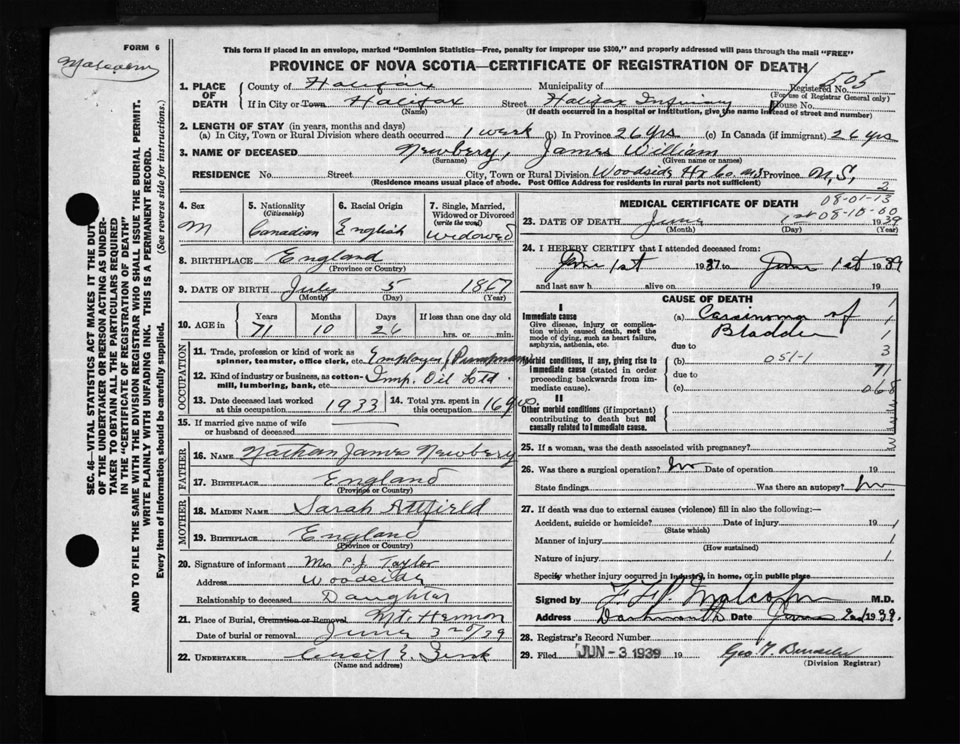 FORM 6
Malcolm
This form if placed in an envelope, marked "Dominion Statistics—Free, penalty for improper use $300," and properly addressed will pass through the mail "FREE"
PROVINCE OF NOVA SCOTIA—CERTIFICATE OF REGISTRATION OF DEATH
SEC. 46—VITAL STATISTICS ACT MAKES IT THE DUTY
OF THE UNDERTAKER OR PERSON ACTING AS UNDER-
TAKER TO OBTAIN ALL THE PARTICULARS REQUIRED
IN THE "CERTIFICATE OF REGISTRATION OF DEATH"
AND TO FILE THE SAME WITH THE DIVISION REGISTRAR WHO SHALL ISSUE THE BURIAL PERMIT.
WRITE PLAINLY WITH UNFADING INK. THIS IS A PERMANENT RECORD.
Every item of Information should be carefully supplied. (See reverse side for instructions.)
1. PLACE OF DEATH County of Halifax Municipality of Registered No. 505
(For use of Registrar General only)
If in City or Town Halifax Street Halifax Infirmary House No.
(Name) (If death occurred in a hospital or institution, give the name instead of street and number)
2. LENGTH OF STAY (in years, months and days)
(a) In City, Town or Rural Division where death occurred 1 week (b) In Province 26 yrs (c) In Canada (if immigrant) 26 yrs
3. NAME OF DECEASED Newbery, James William
(Surname) (Given name or names)
RESIDENCE No. Street City, Town or Rural Division Woodside Hx Co. and Province N.S.
(Residence means usual place of abode. Post Office Address for residents in rural parts not sufficient)
4. Sex M
5. Nationality (Citizenship) Canadian
6. Racial Origin English
7. Single, Married, Widowed or Divorced (write the word) Widowed
8. BIRTHPLACE England
(Province or Country)
9. DATE OF BIRTH July 5 1867
(Month) (Day) (Year)
10. AGE in Years Months Days If less than one day old
71 10 26 hrs. or min.
OCCUPATION
11. Trade, profession or kind of work as spinner, teamster, office clerk, etc.
12. Kind of industry or business, as cotton-mill, lumbering, bank, etc. Imp. Oil Ltd.
13. Date deceased last worked at this occupation 1933
14. Total yrs. spent in this occupation 16 yrs.
15. If married give name of wife or husband of deceased
FATHER
16. NAME Nathan James Newbery
17. BIRTHPLACE England
(Province or Country)
MOTHER
18. MAIDEN NAME Sarah Attfield
19. BIRTHPLACE England
(Province or Country)
20. Signature of informant Mrs C. J. Taylor
Address Woodside
Relationship to deceased Daughter
21. Place of Burial, Cremation or Removal Mt. Hermon
Date of burial or removal June 3rd/39
22. UNDERTAKER
(Name and address)
MEDICAL CERTIFICATE OF DEATH
2
08-01-13
08-10-00
23. DATE OF DEATH June 1st 1939
(Month) (Day) (Year)
24. I HEREBY CERTIFY that I attended deceased from:
June 1st 1937 to June 1st 1939
and last saw h alive on 19
CAUSE OF DEATH
I
Immediate cause
Give disease, injury or complication which caused death, not the mode of dying, such as heart failure, asphyxia, asthenia, etc.
(a) Carsinoma of
Bladder
due to
Morbid conditions, if any, giving rise to immediate cause (stated in order proceeding backwards from immediate cause).
(b) 051-1
due to
(c)
1
1
3
71
068
II
Other morbid conditions (if important) contributing to death but not causally related to immediate cause.
25. If a woman, was the death associated with pregnancy?
26. Was there a surgical operation? No Date of operation 19
State findings Was there an autopsy? No
27. If death was due to external causes (violence) fill in also the following:—
Accident, suicide or homicide? Date of injury 19
(State which)
Manner of injury
(How sustained)
Nature of injury
Specify whether injury occurred in industry, in home, or in public place
Signed by Malcolm M.D.
Address Dartmouth Date June 2nd 1939.
28. Registrar's Record Number
29. Filed JUN - 3 1939 19
(Division Registrar)